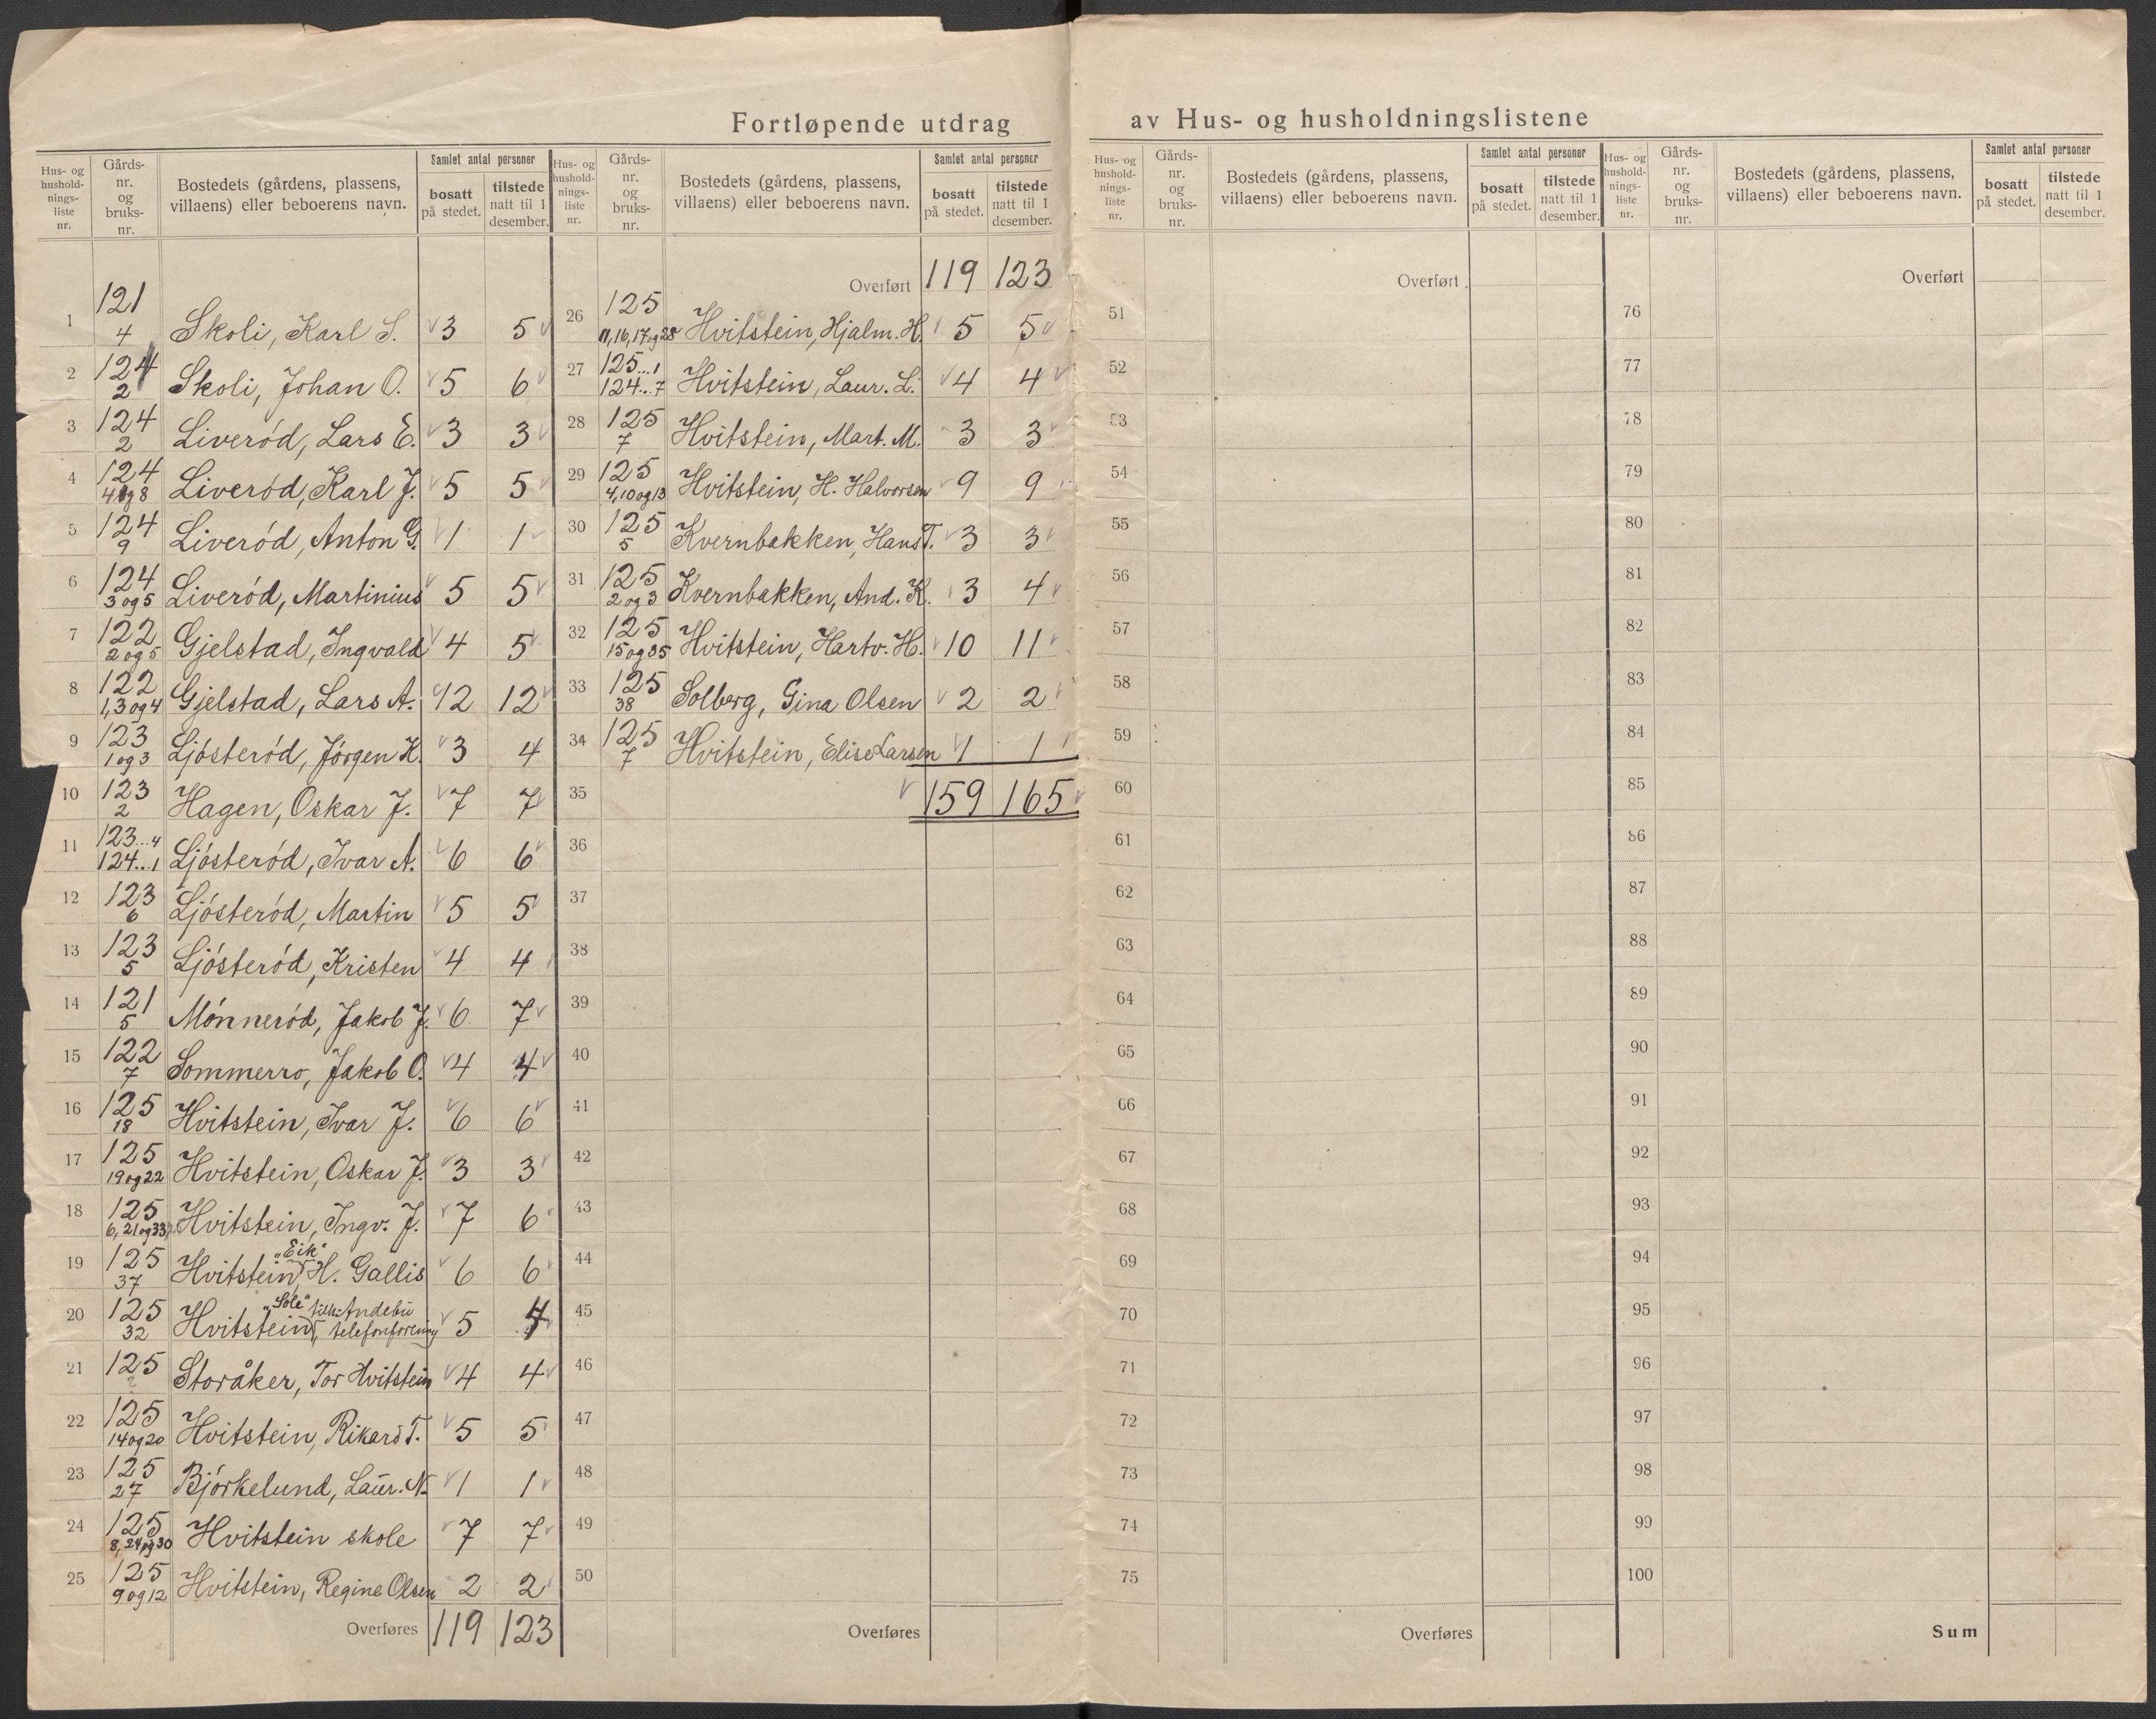 Fortløpende utdrag av Hus- og husholdningslistene
Hus- og husholdnings-liste nr. | Gårds-nr. og bruks-nr. | Bostedets (gårdens, plassens, villaens) eller beboerens navn. | Samlet antal personer | bosatt på stedet. | tilstede natt til 1 desember.
1 | 121 4 | Skoli, Karl S. | 3 | 5
2 | 124 2 | Skoli, Johan O. | 5 | 6
3 | 124 2 | Liveród, Lars E. | 3 | 3
4 | 124 4 og 8 | Liveród, Karl J. | 5 | 5
5 | 124 9 | Liveród, Anton G. | 1 | 1
6 | 124 3 og 5 | Liveród, Martinius | 5 | 5
7 | 122 2 og 5 | Gjelstad, Ingvald | 4 | 5
8 | 122 1, 3 og 4 | Gjelstad, Lars A. | 12 | 12
9 | 123 1 og 3 | Ljósteród, Jórgen K. | 3 | 4
10 | 123 2 | Hagen, Oskar J. | 7 | 7
11 | 123...4 124...1 | Ljósteród, Ivar A. | 6 | 6
12 | 123 6 | Ljósteród, Martin | 5 | 5
13 | 123 5 | Ljósteród, Kristen | 4 | 4
14 | 121 5 | Mónneród, Jakob J. | 6 | 7
15 | 122 7 | Sommerro, Jakob O. | 4 | 4
16 | 125 18 | Hvitstein, Ivar J. | 6 | 6
17 | 125 19 og 22 | Hvitstein, Oskar J. | 3 | 3
18 | 125 6, 21 og 33 | Hvitstein, Ingv. J. | 7 | 6
19 | 125 37 | Hvitstein "Eik", H. Gallis | 6 | 6
20 | 125 32 | Hvitstein "Sole", tilh. Andebu telefonforening | 5 | 4
21 | 125 ? | Storåker, Tor Hvitstein | 4 | 4
22 | 125 14 og 20 | Hvitstein, Rikard T. | 5 | 5
23 | 125 27 | Bjórkelund, Laur. N. | 1 | 1
24 | 125 8, 24 og 30 | Hvitstein skole | 7 | 7
25 | 125 9 og 12 | Hvitstein, Regine Olsen | 2 | 2
Overføres | 119 | 123
Hus- og husholdnings-liste nr. | Gårds-nr. og bruks-nr. | Bostedets (gårdens, plassens, villaens) eller beboerens navn. | Samlet antal personer | bosatt på stedet. | tilstede natt til 1 desember.
Overført | 119 | 123
26 | 125 11, 16, 17 og 28 | Hvitstein, Hjalm. H. | 5 | 5
27 | 125...1 124...7 | Hvitstein, Laur. L. | 4 | 4
28 | 125 7 | Hvitstein, Mart. M. | 3 | 3
29 | 125 4, 10 og 13 | Hvitstein, H. Halvorsen | 9 | 9
30 | 125 5 | Kvernbakken, Hans T. | 3 | 3
31 | 125 2 og 3 | Kvernbakken, And. K. | 3 | 4
32 | 125 15 og 35 | Hvitstein, Hartv. H. | 10 | 11
33 | 125 38 | Solberg, Gina Olsen | 2 | 2
34 | 125 7 | Hvitstein, Elise Larsen | 1 | 1
35 | 159 | 165
36
37
38
39
40
41
42
43
44
45
46
47
48
49
50
Overføres
Hus- og husholdnings-liste nr. | Gårds-nr. og bruks-nr. | Bostedets (gårdens, plassens, villaens) eller beboerens navn. | Samlet antal personer | bosatt på stedet. | tilstede natt til 1 desember.
Overført
51
52
53
54
55
56
57
58
59
60
61
62
63
64
65
66
67
68
69
70
71
72
73
74
75
Overføres
Hus- og husholdnings-liste nr. | Gårds-nr. og bruks-nr. | Bostedets (gårdens, plassens, villaens) eller beboerens navn. | Samlet antal personer | bosatt på stedet. | tilstede natt til 1 desember.
Overført
76
77
78
79
80
81
82
83
84
85
86
87
88
89
90
91
92
93
94
95
96
97
98
99
100
Sum